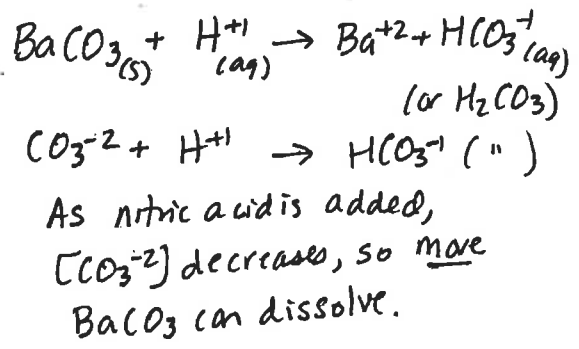 BaCO₃(s) + H⁺¹(aq) → Ba⁺² + HCO₃⁻¹(aq)
(or H₂CO₃)
CO₃⁻² + H⁺¹ → HCO₃⁻¹ ( " )
As nitric acid is added,
[CO₃⁻²] decreases, so more
BaCO₃ can dissolve.